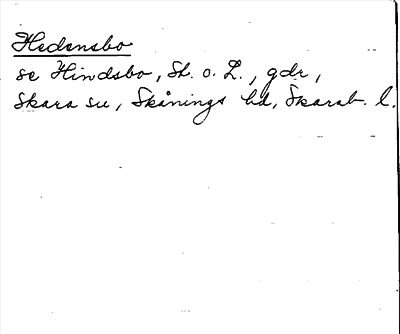 Hedensbo
se Hindsbo, St. o. L., gdr,
Skara su, Skånings hd, Skarab. l.